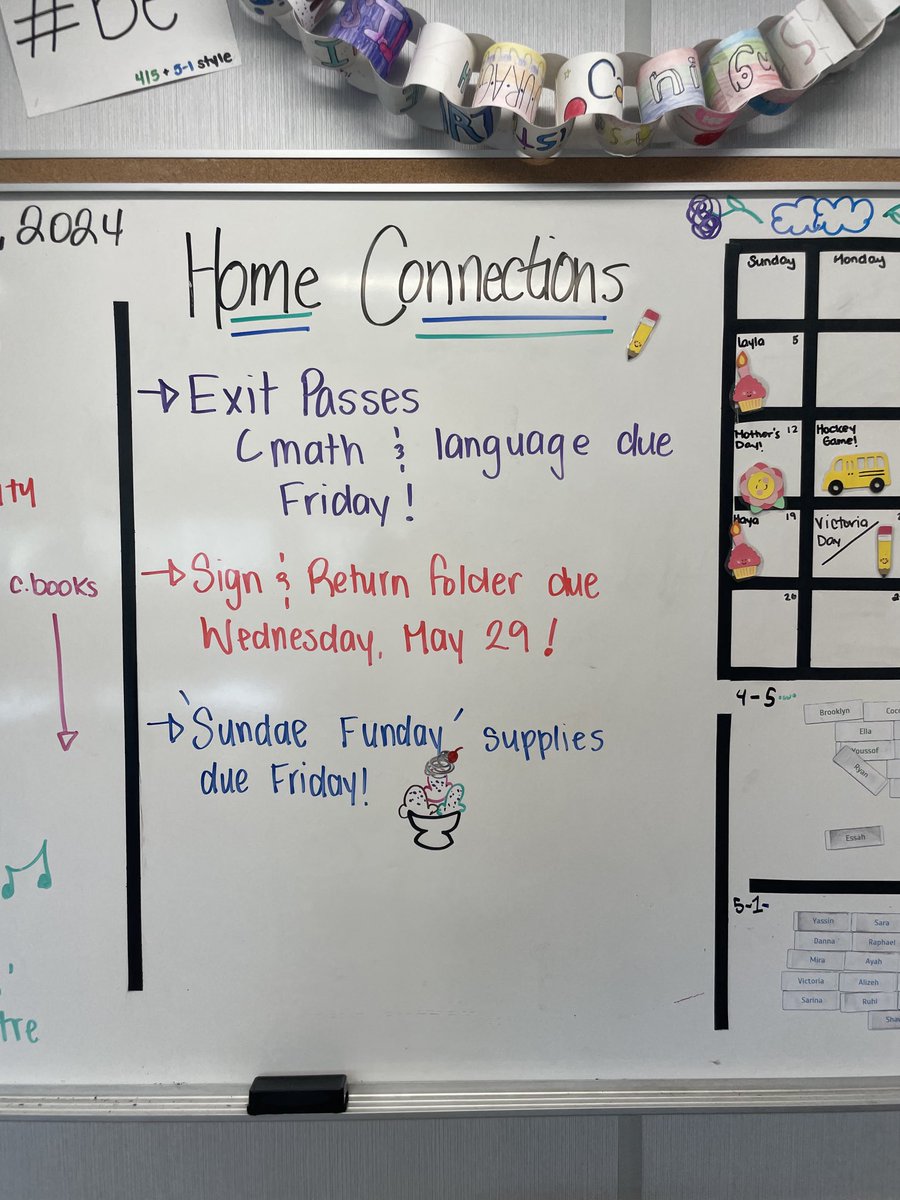 4/5 + 5-1 style
, 2024
Home Connections
→ Exit Passes
(math & language due
Friday!
→ Sign & Return folder due
Wednesday, May 29!
→ 'Sundae Funday' supplies
due Friday!
c.books
Sunday Monday
Layla 5
Mother's Day! 12
Hockey Game!
Haya 19
Victoria Day
26
4-5
Brooklyn
Ella
Youssof
Ryan
Essah
5-1-
Yassin Sara
Danna Raphael
Mira Ayah
Victoria Alizeh
Sarina Ruhi